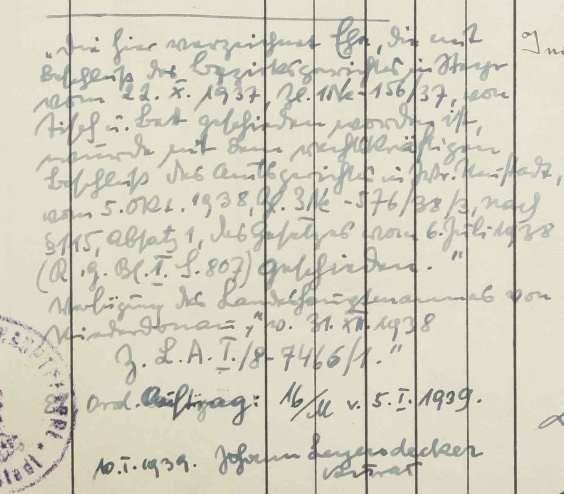 „Die hier verzeichnete Ehe, die mit
Beschluß des Bezirksgerichtes in Steyr
vom 22. X. 1937, Zl. 1Nc-156/37, von
Tisch u. Bett geschieden worden ist,
wurde mit dem rechtskräftigen
Beschluß des Amtsgerichtes in Wr. Neustadt,
vom 5. Okt. 1938, Zl. 3Nc-576/38/3, nach
§ 115, Absatz 1, des Gesetzes vom 6. Juli 1938
(R. g. Bl. I. S. 807) geschieden."
Verfügung des Landeshauptmannes von
Niederdonau," v. 31. XII. 1938
Z. L. A. I./8-7466/1."
Ord. Auftrag: 16/M v. 5. I. 1939.
10. I. 1939. Johann